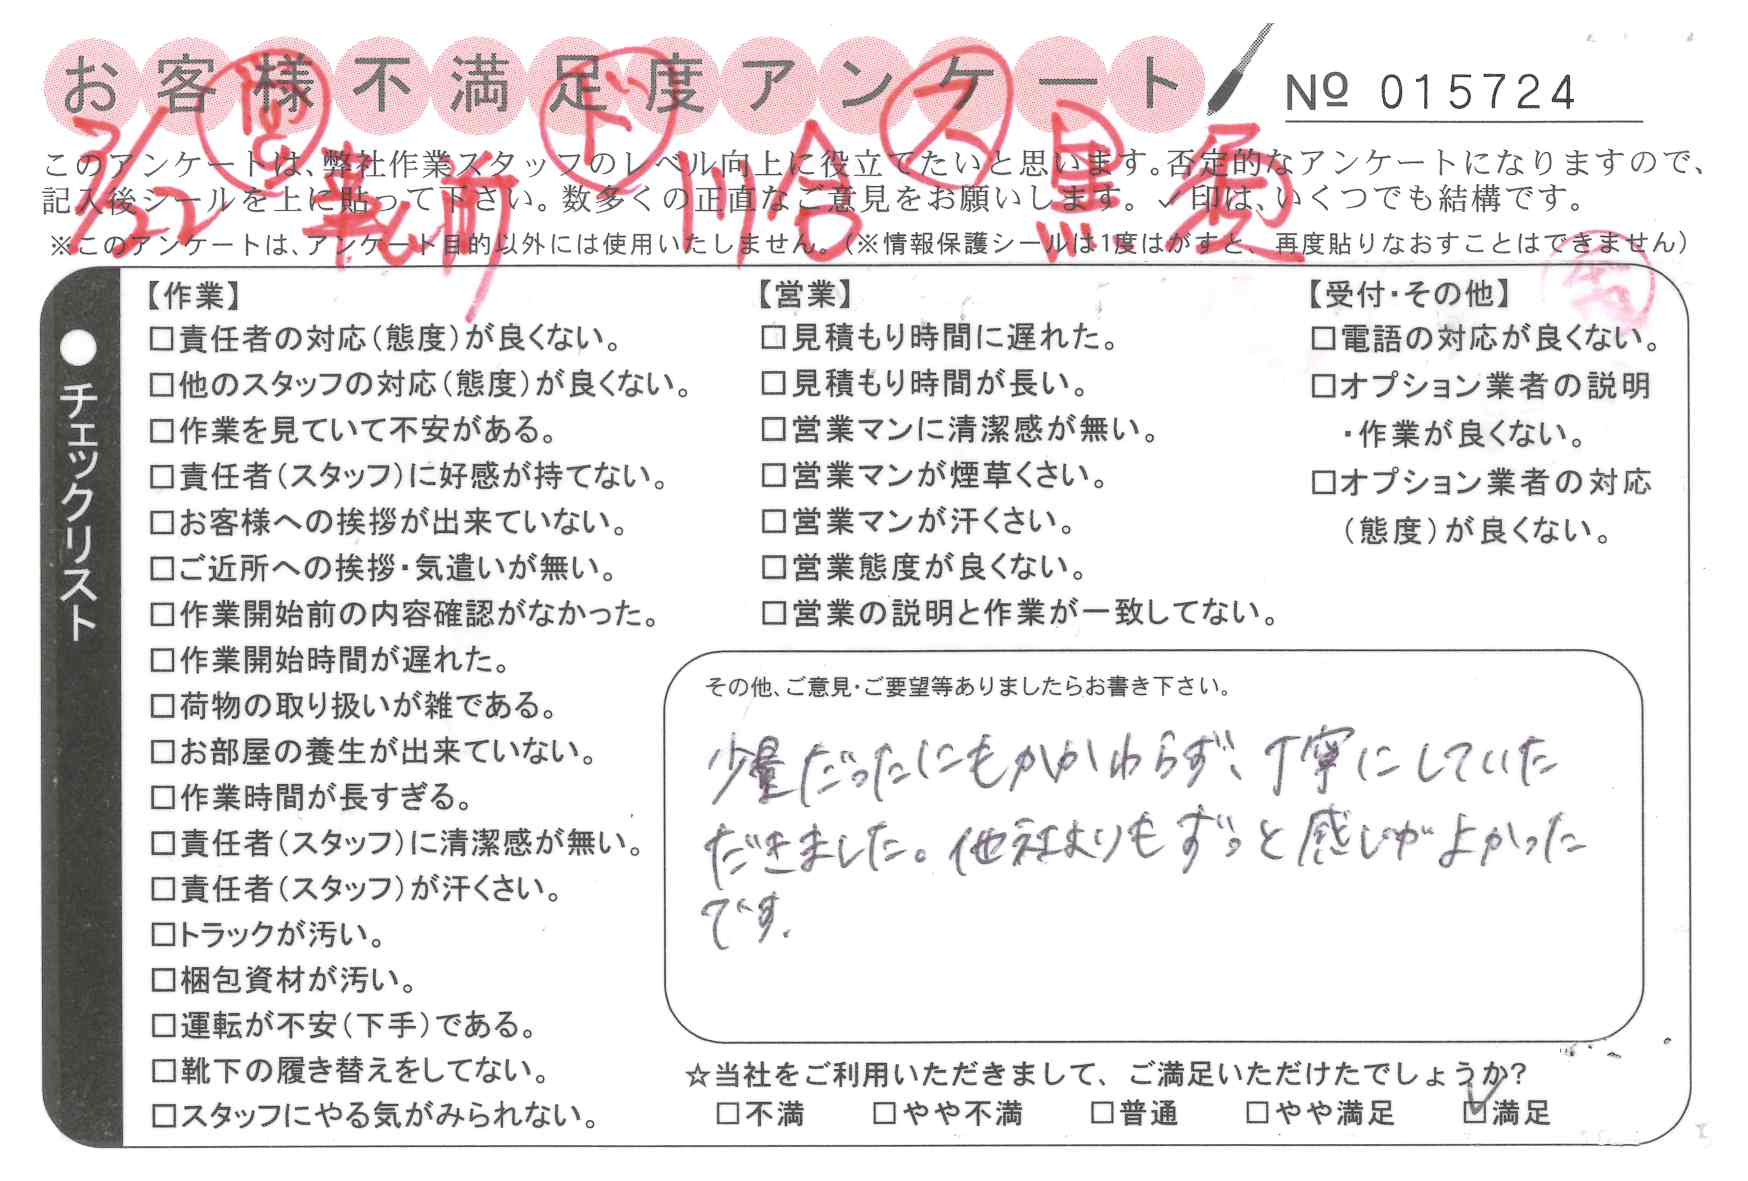 お客様不満足度アンケート
Nº 015724
このアンケートは、弊社作業スタッフのレベル向上に役立てたいと思います。否定的なアンケートになりますので、
記入後シールを上に貼って下さい。数多くの正直なご意見をお願いします。✓印は、いくつでも結構です。
※このアンケートは、アンケート目的以外には使用いたしません。(※情報保護シールは1度はがすと、再度貼りなおすことはできません)
7/22 ド 川合 ス
チェックリスト
【作業】
□責任者の対応(態度)が良くない。
□他のスタッフの対応(態度)が良くない。
□作業を見ていて不安がある。
□責任者(スタッフ)に好感が持てない。
□お客様への挨拶が出来ていない。
□ご近所への挨拶・気遣いが無い。
□作業開始前の内容確認がなかった。
□作業開始時間が遅れた。
□荷物の取り扱いが雑である。
□お部屋の養生が出来ていない。
□作業時間が長すぎる。
□責任者(スタッフ)に清潔感が無い。
□責任者(スタッフ)が汗くさい。
□トラックが汚い。
□梱包資材が汚い。
□運転が不安(下手)である。
□靴下の履き替えをしてない。
□スタッフにやる気がみられない。
【営業】
□見積もり時間に遅れた。
□見積もり時間が長い。
□営業マンに清潔感が無い。
□営業マンが煙草くさい。
□営業マンが汗くさい。
□営業態度が良くない。
□営業の説明と作業が一致してない。
【受付・その他】
□電語の対応が良くない。
□オプション業者の説明
・作業が良くない。
□オプション業者の対応
(態度)が良くない。
その他、ご意見・ご要望等ありましたらお書き下さい。
少量だったにもかかわらず、丁寧にしていた
だきました。他社よりもずっと感じがよかった
です.
☆当社をご利用いただきまして、ご満足いただけたでしょうか?
□不満 □やや不満 □普通 □やや満足 ☑満足